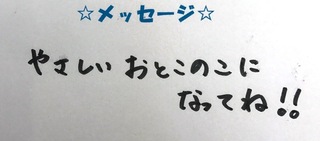 ☆メッセージ☆
やさしい おとこのこに
なってね!!